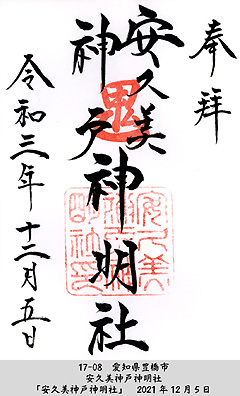 奉拝
安久美
神戸神明社
令和三年十二月五日
安久美
神戸神
明社印
17-08 愛知県豊橋市
安久美神戸神明社
「安久美神戸神明社」 2021年12月5日